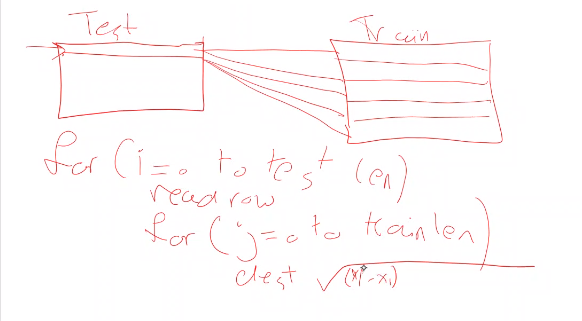 Test
Train
for (i=0 to test len)
read row
for (j=0 to train len)
dest √(x1-x1)